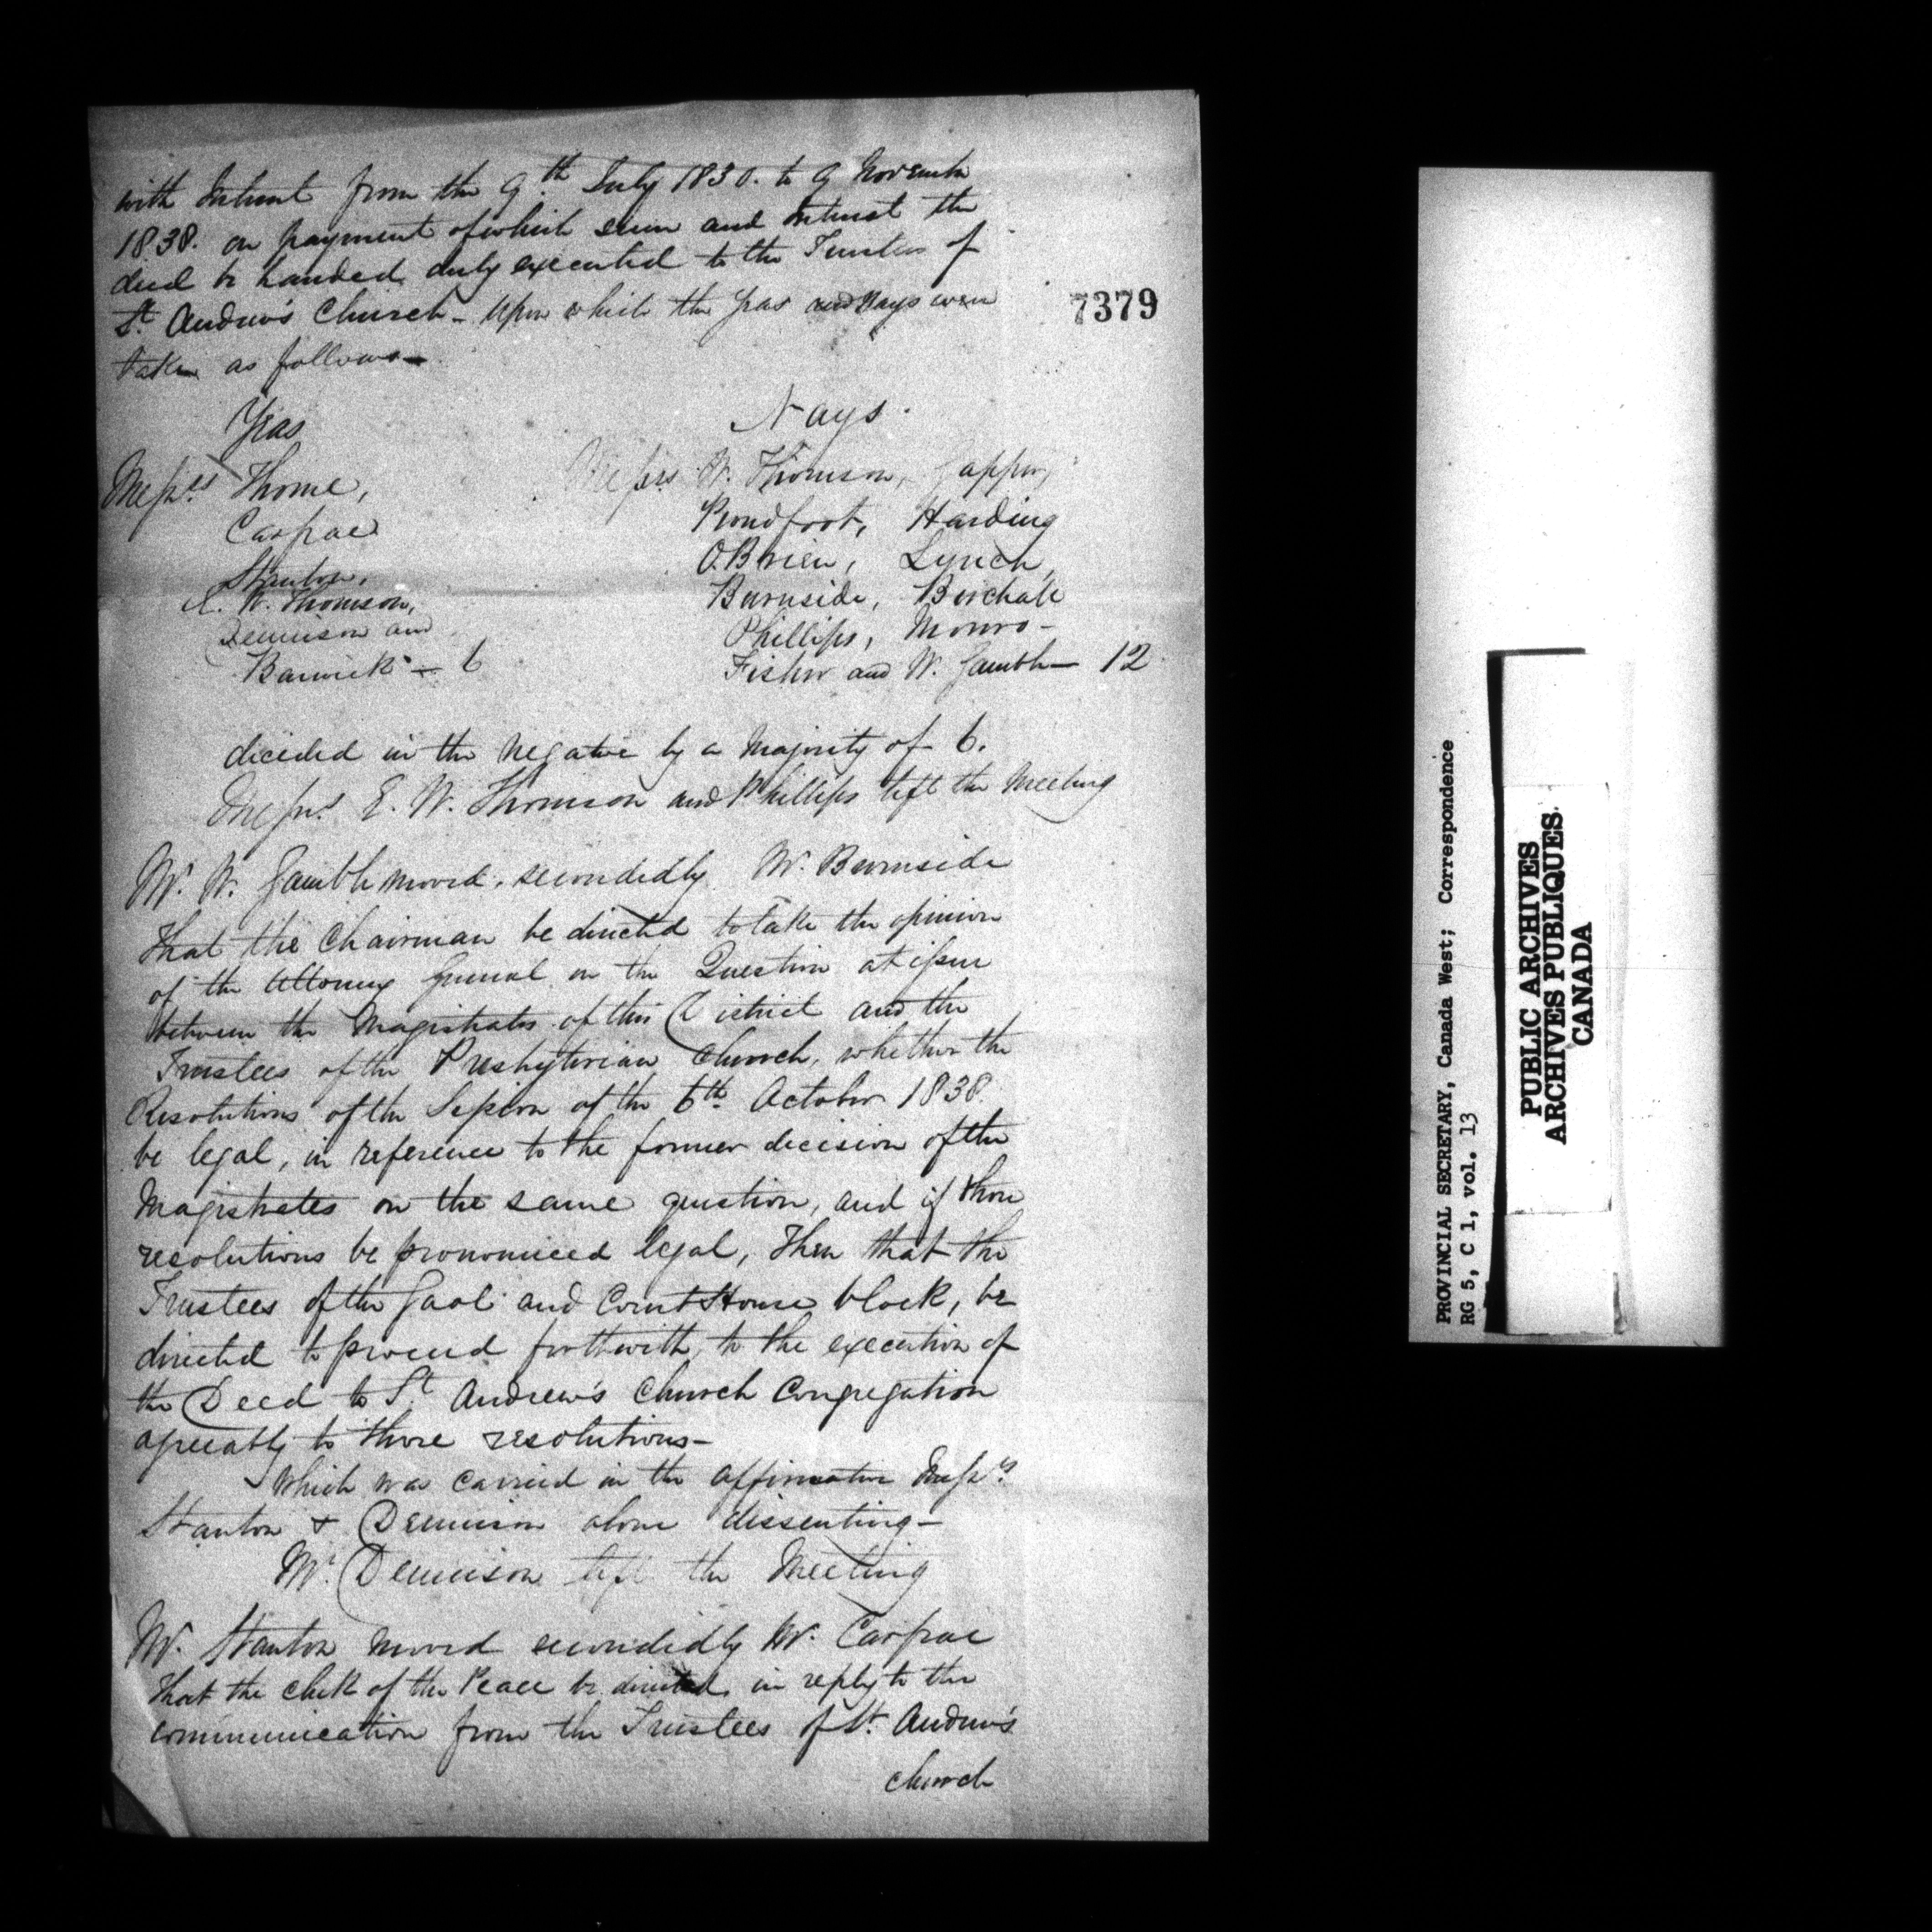 with Interest from the 9th July 1830. to 9 November
1838. on payment of which sum and Interest the
deed be handed duly executed to the Trustees of
St. Andrew's Church - Upon which the yeas and Nays were
taken as follows -
7379
Yeas
Messrs Thorne,
Carfrae
Stanton,
E. W. Thomson,
Dennison and
Barwick - 6
Nays.
Messrs W. Thomson, Gapper,
Proudfoot, Harding
O.Brien, Lynch,
Burnside, Birchall
Phillips, Monro -
Fisher and W. Gamble - 12
decided in the Negative by a Majority of 6.
Messrs E. W. Thomson and Phillips left the Meeting
Mr. W. Gamble moved, seconded by Mr. Burnside
That the Chairman be directed to take the opinion
of the Attorney General on the Question at issue
between the Magistrates of this District and the
Trustees of the Presbyterian Church, whether the
Resolutions of the Session of the 6th October 1838.
be legal, in reference to the former decision of the
Magistrates on the same question, and if those
resolutions be pronounced legal, Then that the
Trustees of the Gaol and Court House block, be
directed to proceed forthwith, to the execution of
the Deed to St. Andrew's Church Congregation
agreeably to those resolutions -
Which was carried in the affirmative Messrs
Stanton & Dennison alone dissenting -
Mr. Dennison left the Meeting
Mr. Stanton moved seconded by Mr. Carfrae
That the Clerk of the Peace be directed, in reply to the
communication from the Trustees of St. Andrew's
Church
PROVINCIAL SECRETARY, Canada West; Correspondence
RG 5, C 1, vol. 13
PUBLIC ARCHIVES
ARCHIVES PUBLIQUES
CANADA